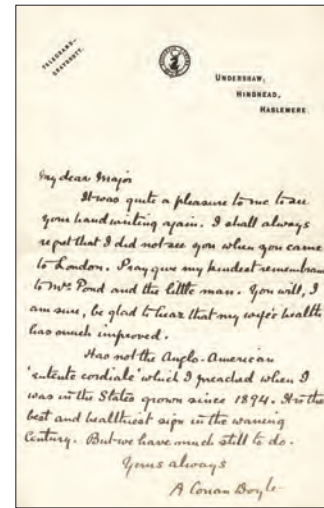 TELEGRAMS—
GRAYSHOTT.
UNDERSHAW,
HINDHEAD,
HASLEMERE.
My dear Major
It was quite a pleasure to me to see
your handwriting again. I shall always
regret that I did not see you when you came
to London. Pray give my kindest remembran
to Mrs Pond and the little man. You will, I
am sure, be glad to hear that my wife's health
has much improved.
Has not the Anglo-American
'entente cordiale' which I preached when I
was in the States grown since 1894. It is the
best and healthiest sign in the waning
Century. But we have much still to do.
Yours always
A Conan Doyle